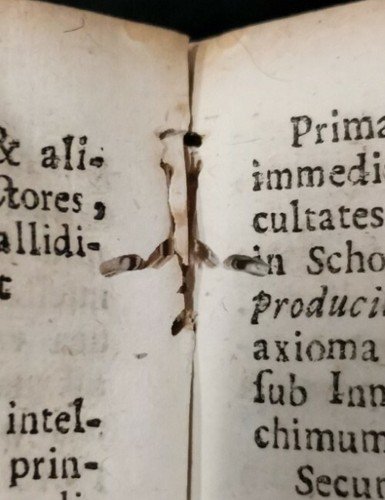 & ali-
ctores,
allidi-
t
intel-
prin-
Prima
immedi
cultates
in Scho
produci
axioma
ſub Inn
chimum
Secun